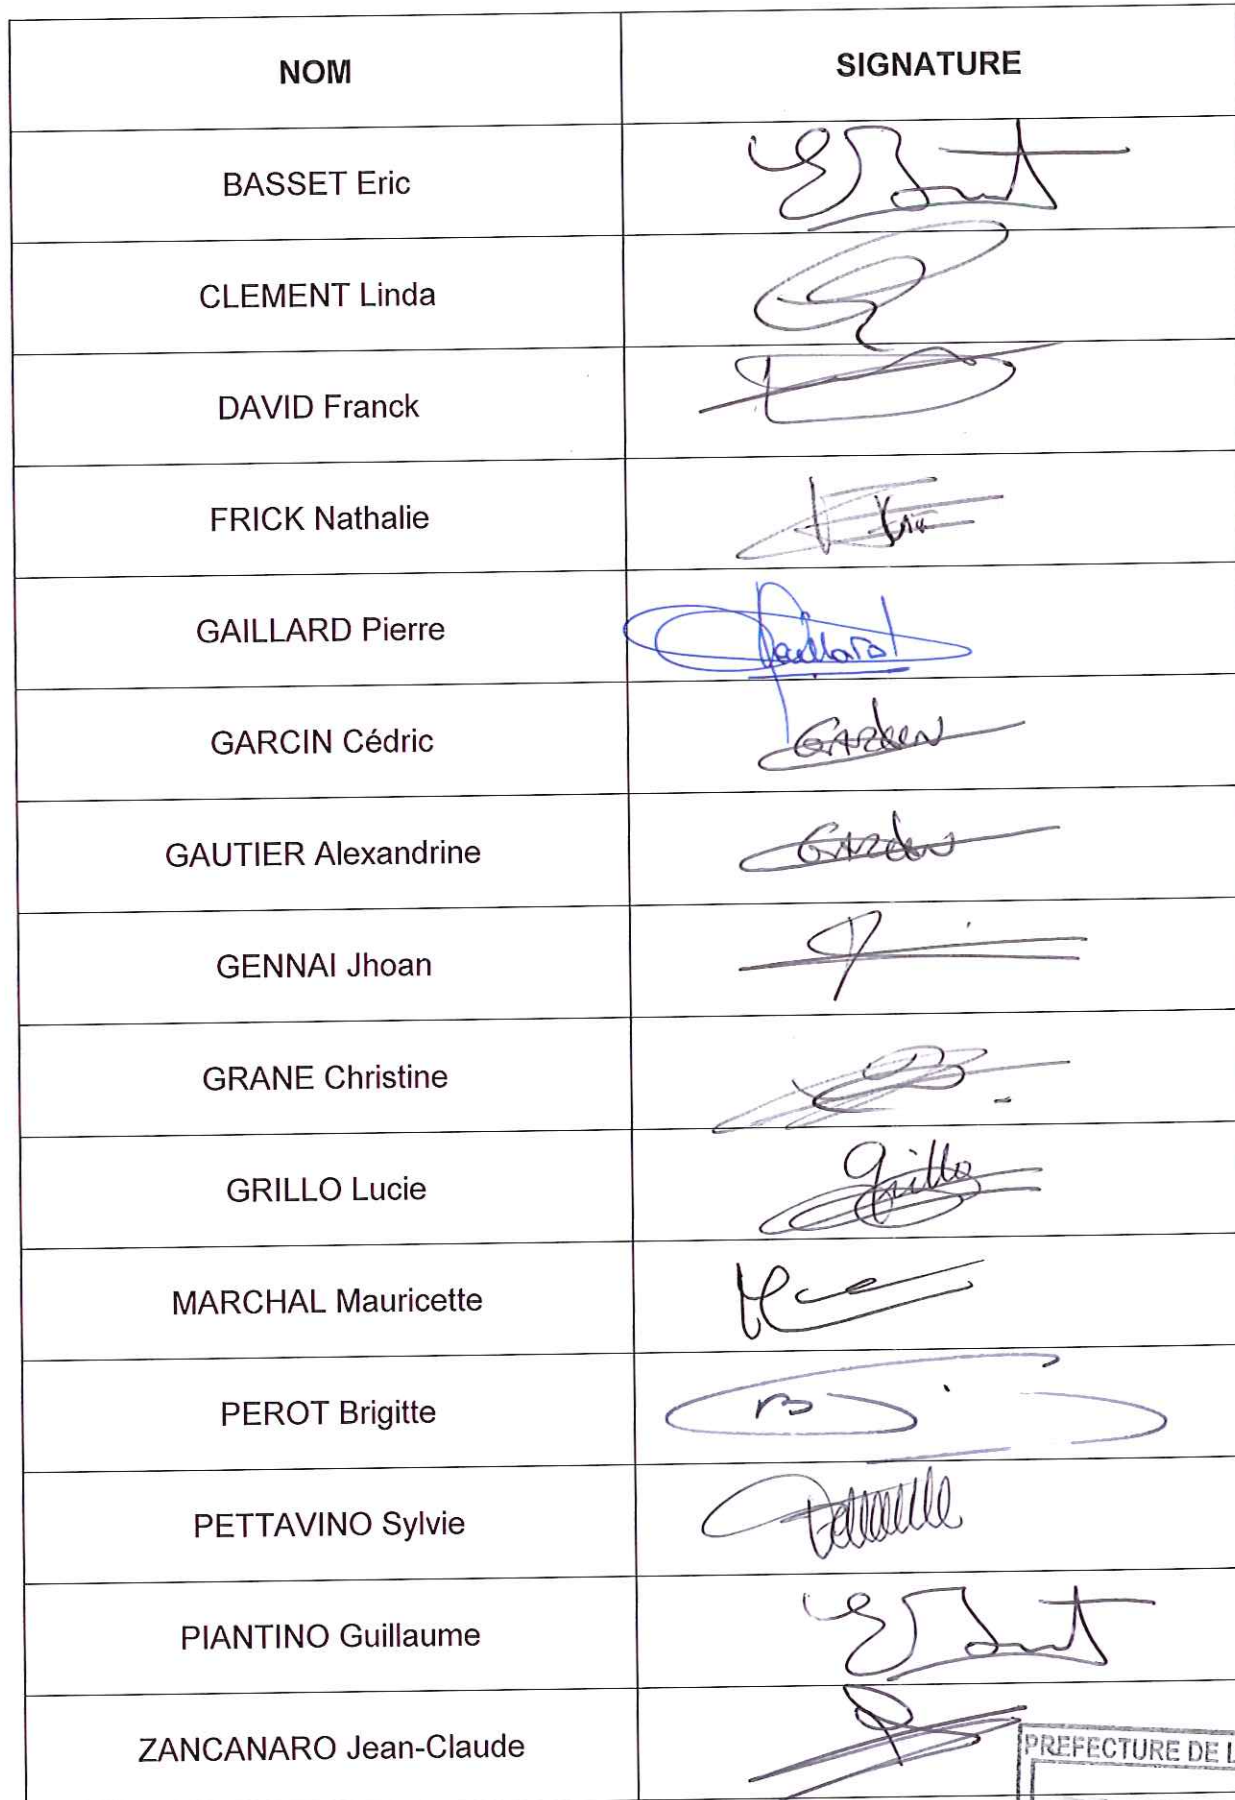 NOM SIGNATURE
BASSET Eric
CLEMENT Linda
DAVID Franck
FRICK Nathalie
GAILLARD Pierre Gaillard
GARCIN Cédric GARCIN
GAUTIER Alexandrine GARCIN
GENNAI Jhoan
GRANE Christine
GRILLO Lucie Grillo
MARCHAL Mauricette
PEROT Brigitte
PETTAVINO Sylvie
PIANTINO Guillaume
ZANCANARO Jean-Claude
PREFECTURE DE L